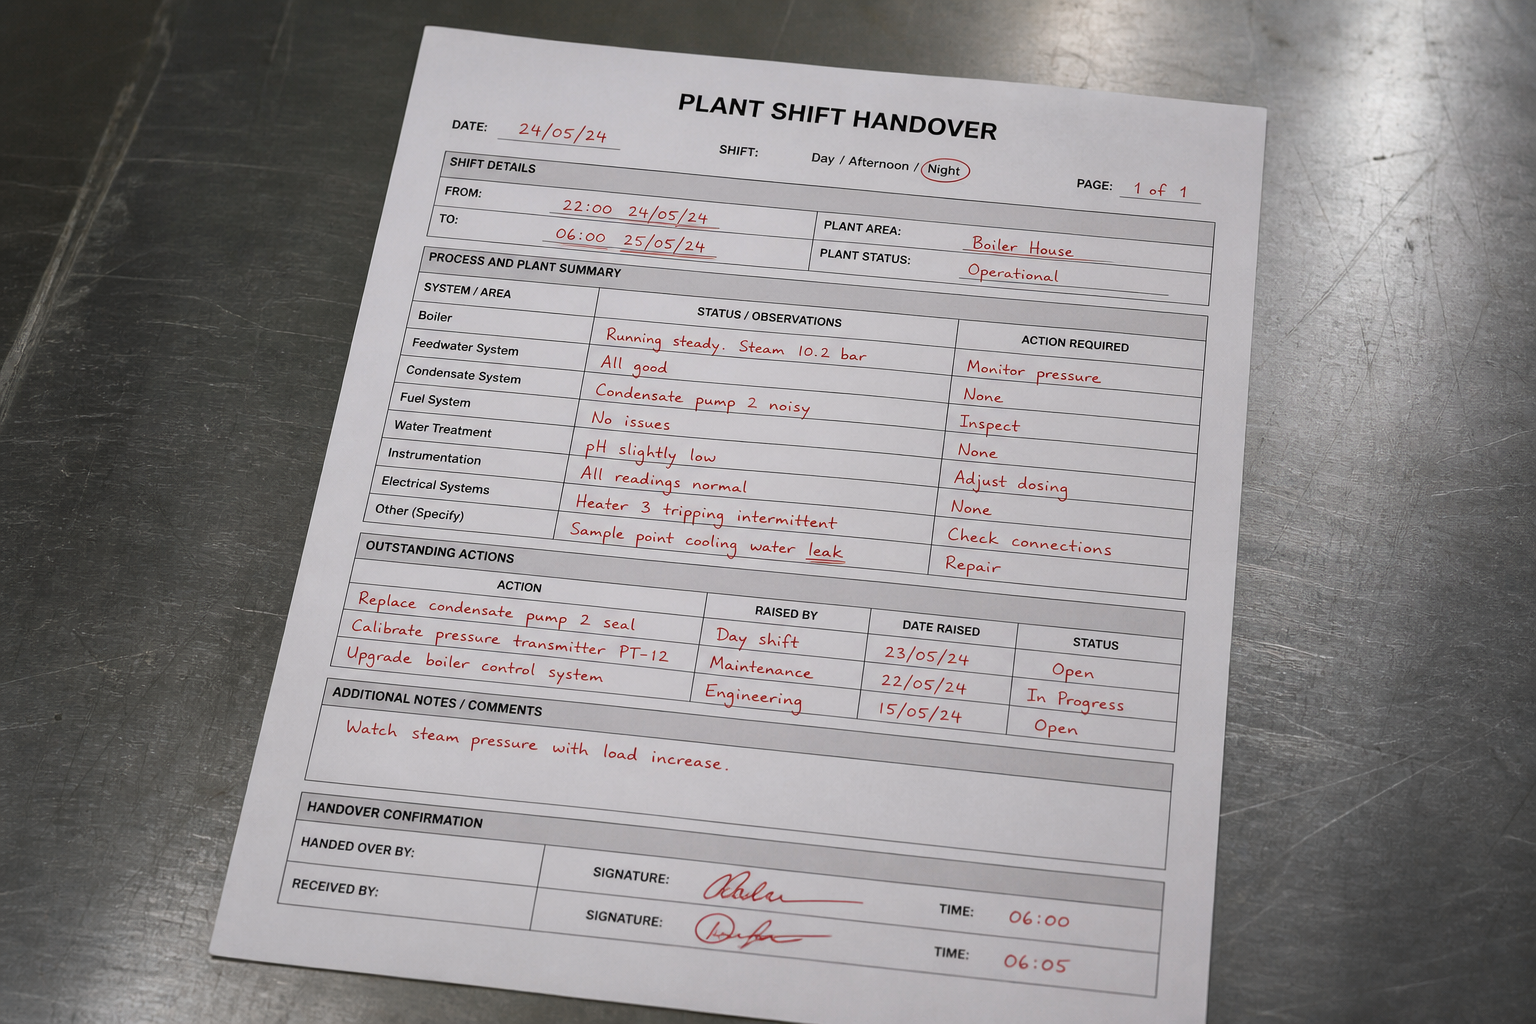 PLANT SHIFT HANDOVER
DATE: 24/05/24 SHIFT: Day / Afternoon / Night PAGE: 1 of 1
SHIFT DETAILS
FROM: 22:00 24/05/24 PLANT AREA: Boiler House
TO: 06:00 25/05/24 PLANT STATUS: Operational
PROCESS AND PLANT SUMMARY
SYSTEM / AREA STATUS / OBSERVATIONS ACTION REQUIRED
Boiler Running steady. Steam 10.2 bar Monitor pressure
Feedwater System All good None
Condensate System Condensate pump 2 noisy Inspect
Fuel System No issues None
Water Treatment pH slightly low Adjust dosing
Instrumentation All readings normal None
Electrical Systems Heater 3 tripping intermittent Check connections
Other (Specify) Sample point cooling water leak Repair
OUTSTANDING ACTIONS
ACTION RAISED BY DATE RAISED STATUS
Replace condensate pump 2 seal Day shift 23/05/24 Open
Calibrate pressure transmitter PT-12 Maintenance 22/05/24 In Progress
Upgrade boiler control system Engineering 15/05/24 Open
ADDITIONAL NOTES / COMMENTS
Watch steam pressure with load increase.
HANDOVER CONFIRMATION
HANDED OVER BY: SIGNATURE: TIME: 06:00
RECEIVED BY: SIGNATURE: TIME: 06:05